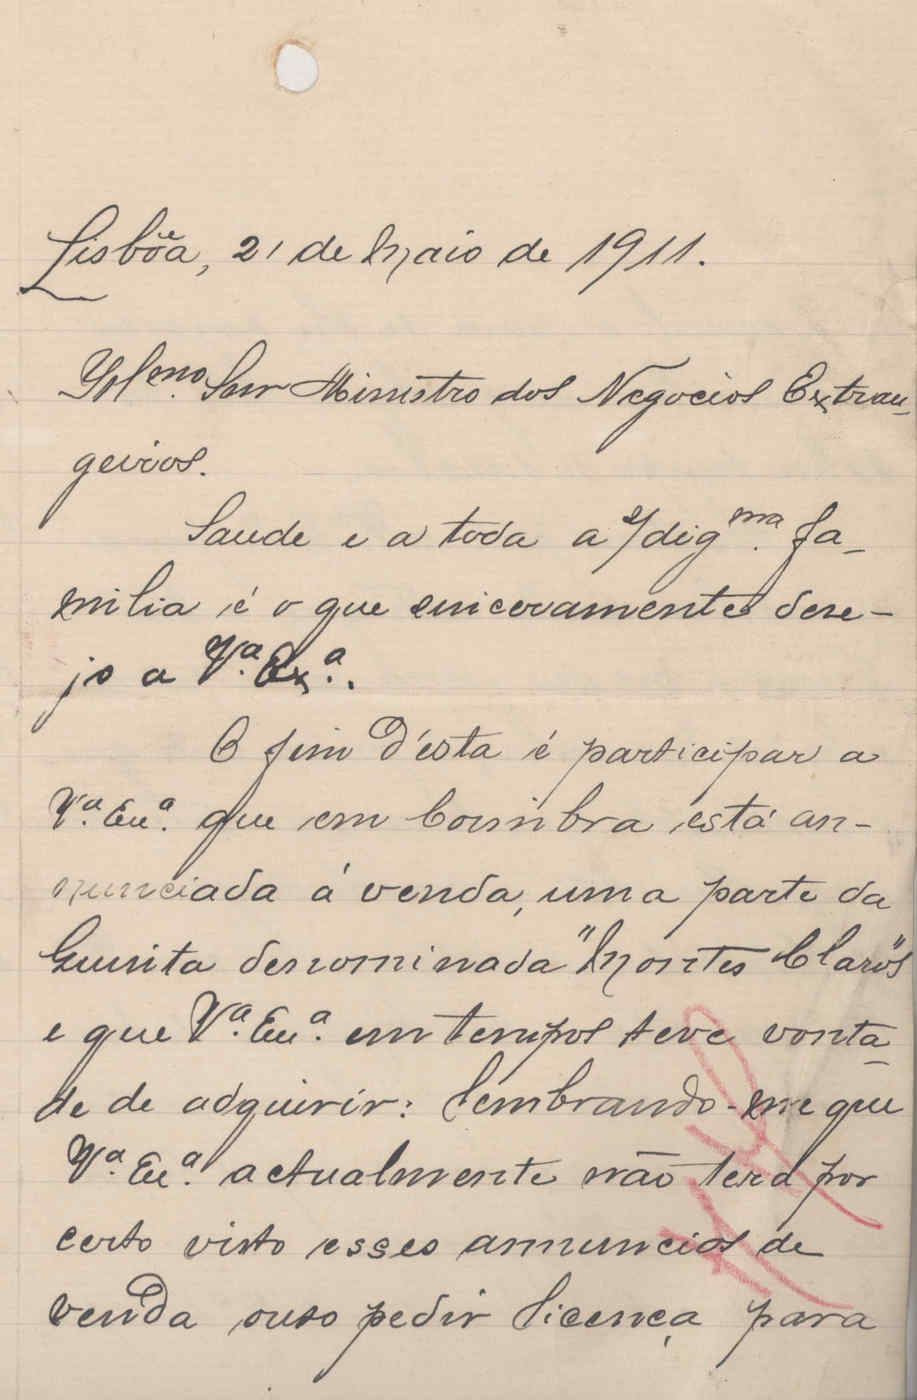 Lisbôa, 21 de Maio de 1911.
Ill.mo Snr Ministro dos Negocios Extran-
geiros.
Saude e a toda a s/ dig.ma fa-
milia é o que sinceramente dese-
jo a V.ª Ex.ª.
O fim d'esta é participar a
V.ª Ex.ª que em Coimbra está an-
nunciada á venda, uma parte da
Quinta denominada "Montes Claros"
e que V.ª Ex.ª em tempos teve vonta-
de de adquirir: lembrando-me que
V.ª Ex.ª actualmente não terá por
certo visto esses annuncios de
venda ouso pedir licença para